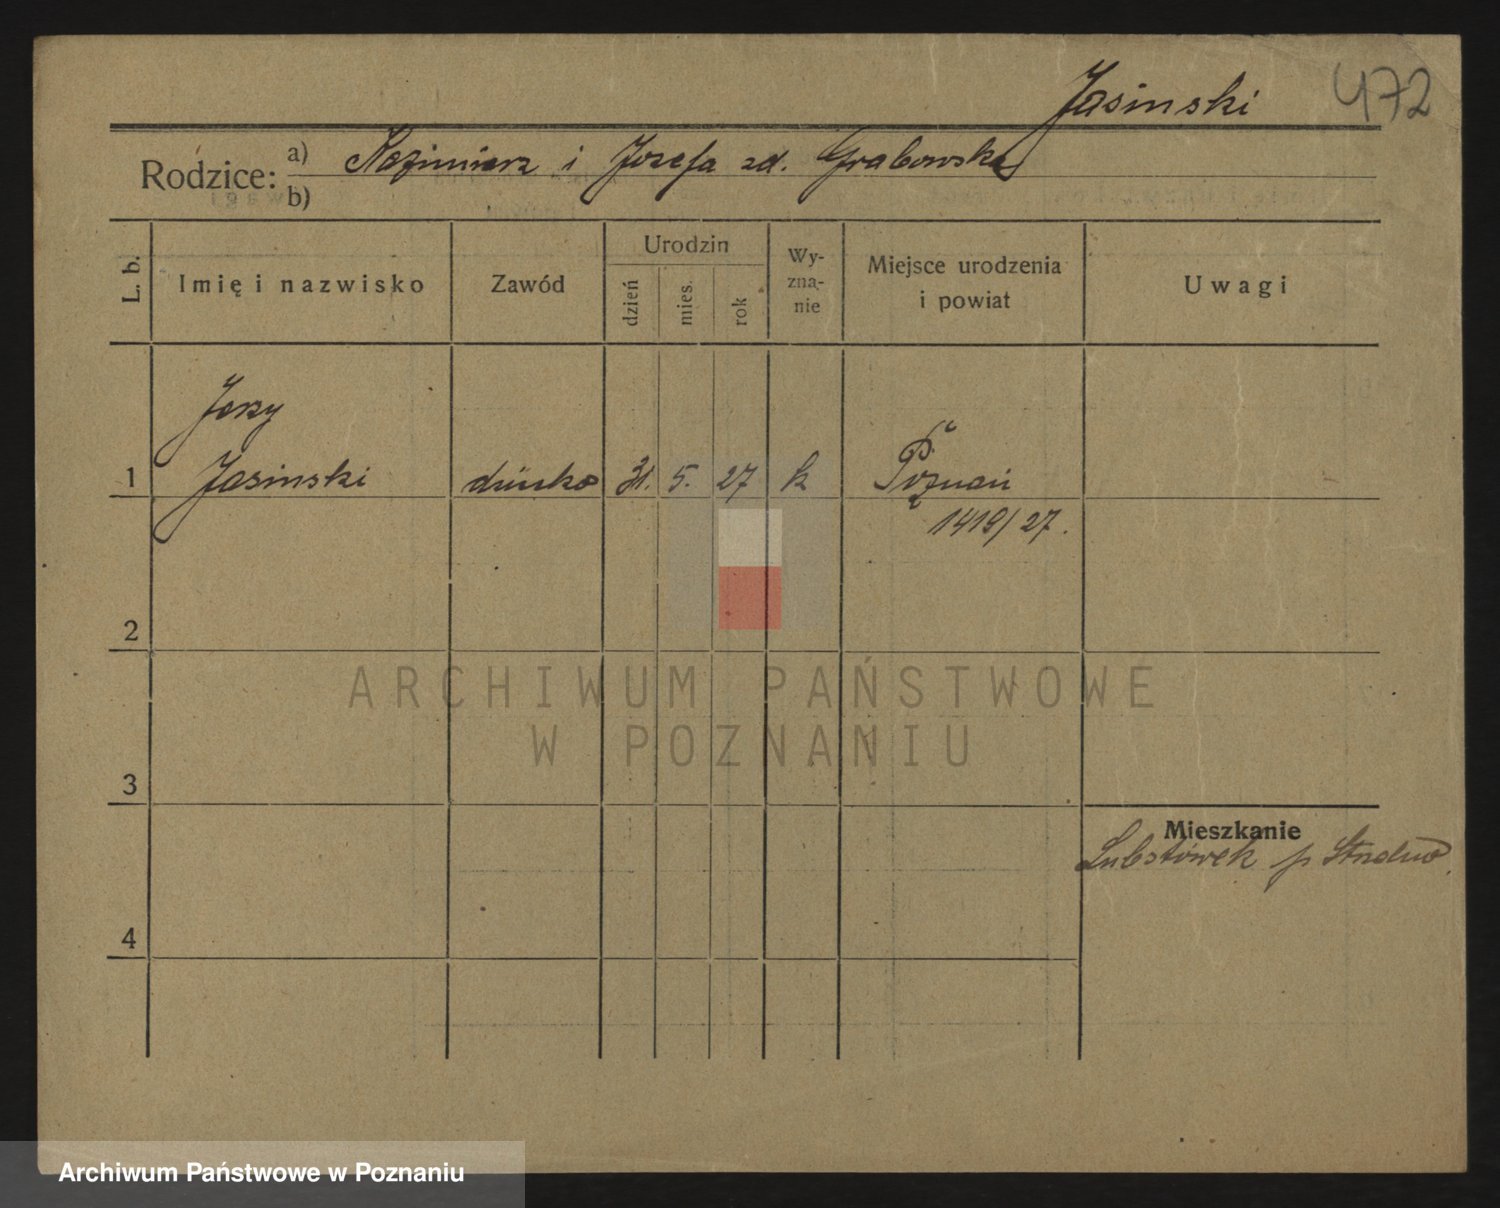 Jasinski
472
Rodzice: a) Kazimierz i Jozefa zd. Grabowska
b)
L. b.
Imię i nazwisko
Zawód
Urodzin
dzień
mies.
rok
Wy-
zna-
nie
Miejsce urodzenia
i powiat
Uwagi
Jerzy
1 Jasinski 31. 5. 27 k Poznań
1419/27.
2
ARCHIWUM PAŃSTWOWE
W POZNANIU
3
Mieszkanie
Lubstówek p
4
Archiwum Państwowe w Poznaniu